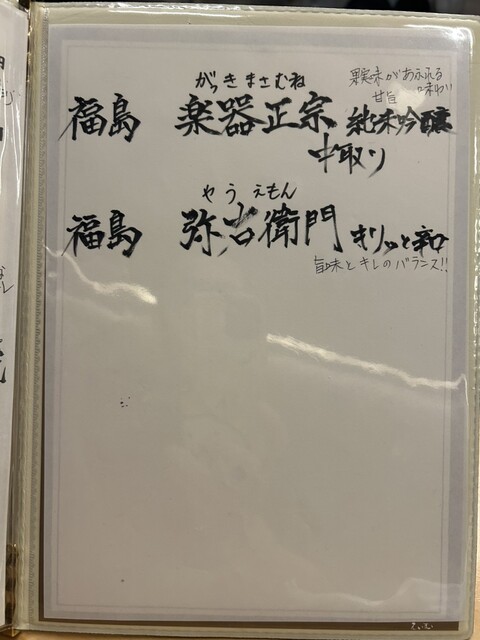 がっきまさむね
果実味があふれる
甘旨 味わい
福島 楽器正宗 純米吟醸
中取り
やうえもん
福島 弥右衛門 キリッと辛口
旨味とキレのバランス!!